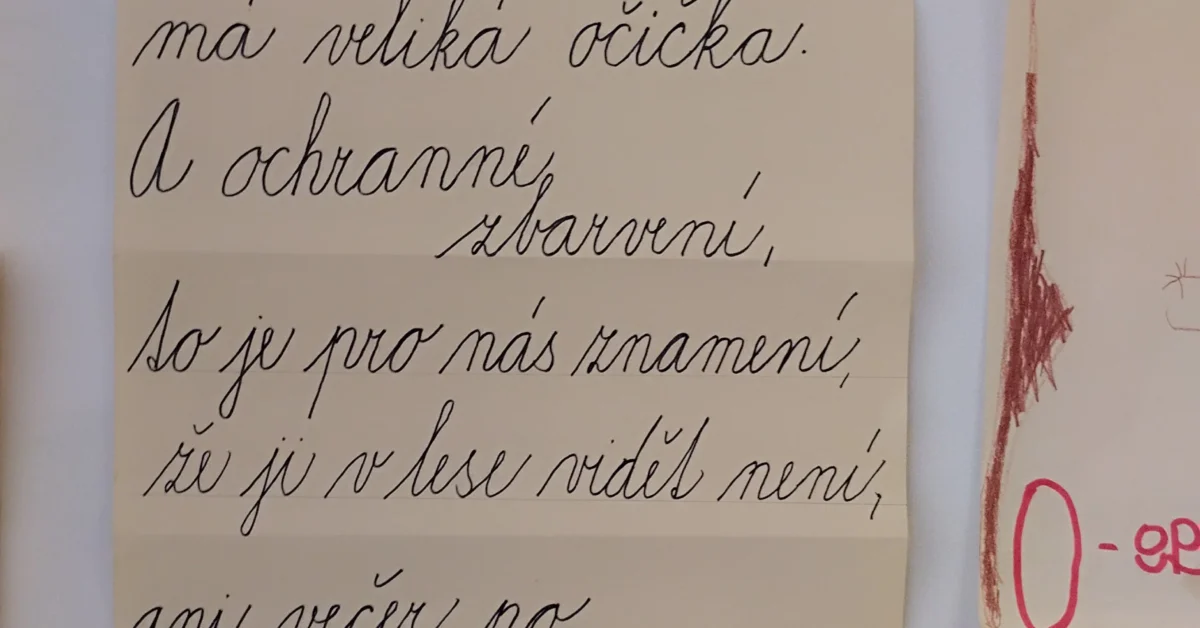 má veliká očička.
A ochranné
zbarvení,
to je pro nás znamení,
že ji v lese vidět není,
ani večer po